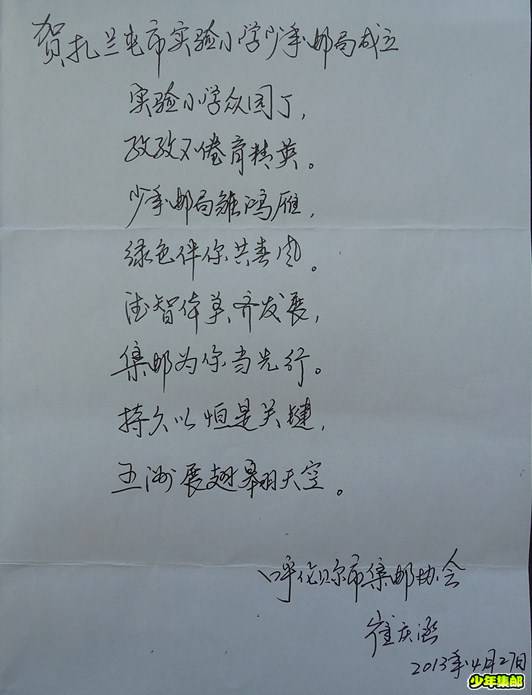 贺扎兰屯市实验小学少年邮局成立
实验小学众园丁，
孜孜不倦育精英。
少年邮局雏鸿雁，
绿色伴你共春风。
德智体美齐发展，
集邮为你当先行。
持久以恒是关键，
五洲展翅翱天空。
呼伦贝尔市集邮协会
崔庆
2013年4月27日
少年集邮